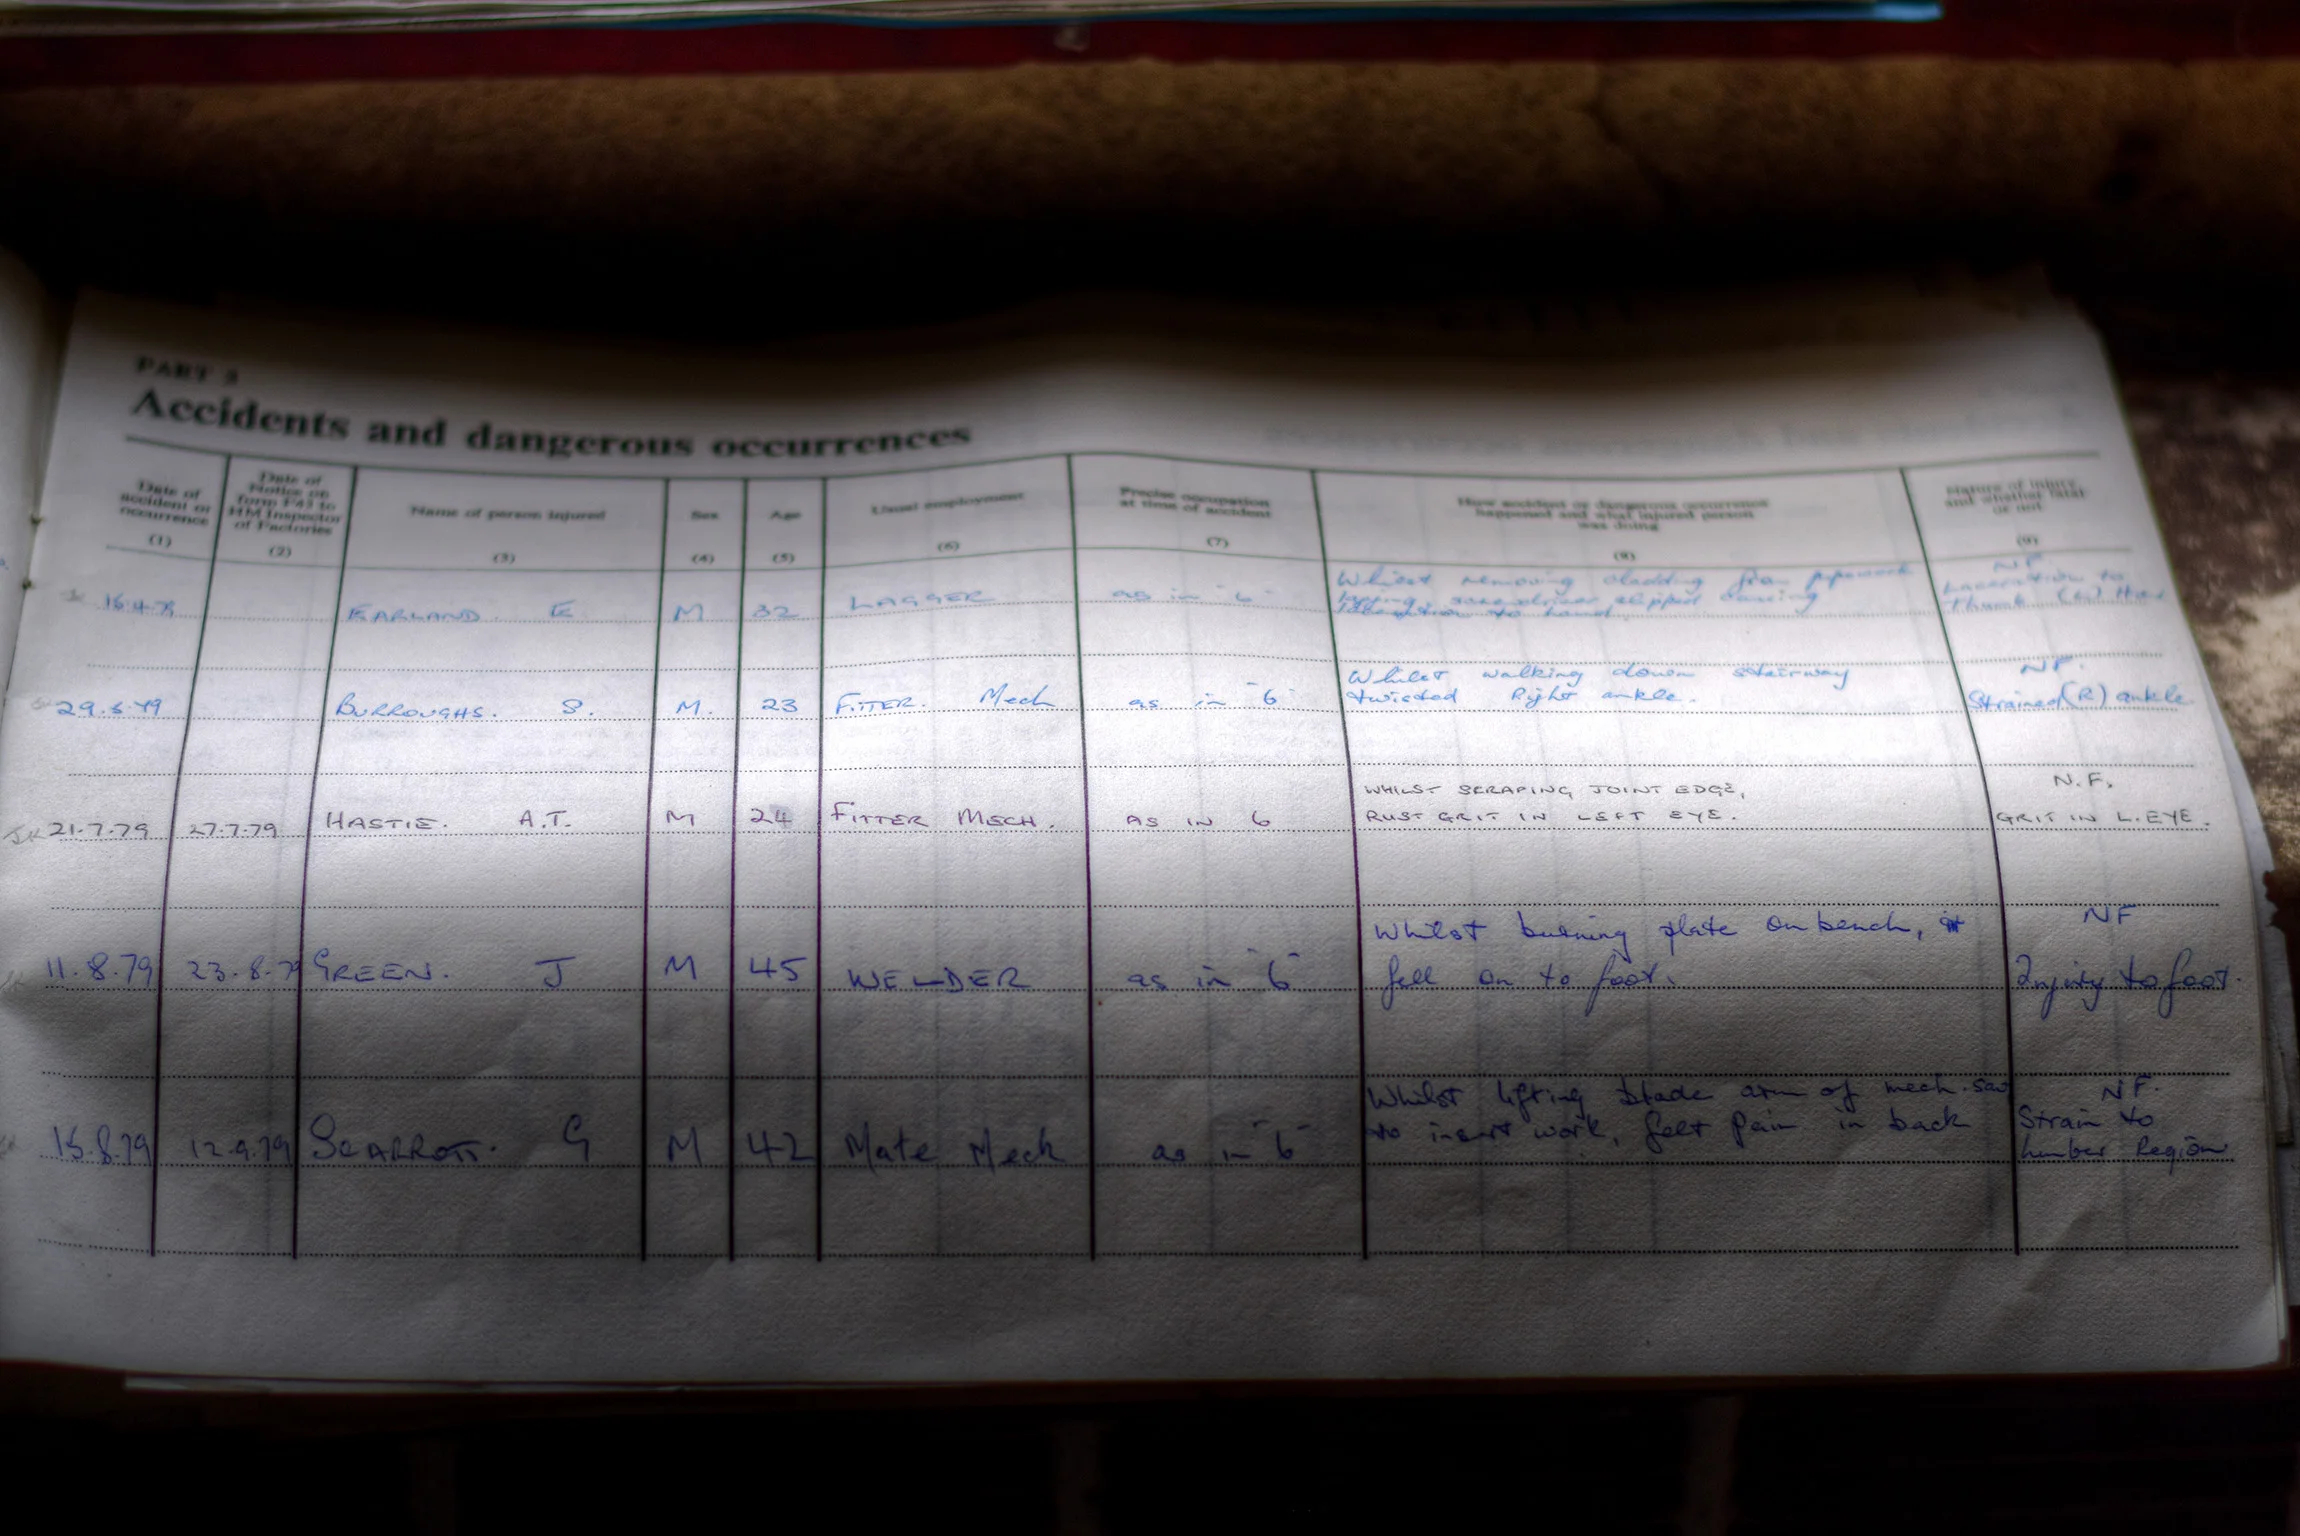 PART 3
Accidents and dangerous occurrences
Date of
accident or
occurrence
(1)
Date of
Notice on
form F43 to
HM Inspector
of Factories
(2)
Name of person injured
(3)
Sex
(4)
Age
(5)
Usual employment
(6)
Precise occupation
at time of accident
(7)
How accident or dangerous occurrence
happened and what injured person
was doing
(8)
Nature of injury
and whether fatal
or not
(9)
EARLAND E M 32 LAGGER as in "6"
Whilst removing cladding from pipework
lagging, screwdriver slipped causing
laceration to hand
NF
Laceration to
Thumb
BURROUGHS. S. M. 23 FITTER. Mech as in "6"
Whilst walking down stairway
twisted Right ankle.
NF.
Strained (R) ankle
21.7.79 27.7.79 HASTIE. A.T. M 24 FITTER MECH. AS IN 6
WHILST SCRAPING JOINT EDGE,
RUST GRIT IN LEFT EYE.
N.F.
GRIT IN L. EYE.
11.8.79 23.8.79 GREEN. J M 45 WELDER as in "6"
Whilst burning plate on bench, it
fell on to foot.
NF
Injury to foot.
15.8.79 12.9.79 SCARROTT. G M 42 Mate Mech as in "6"
Whilst lifting blade arm of mech. saw
to insert work, felt pain in back
NF.
Strain to
lumber Region